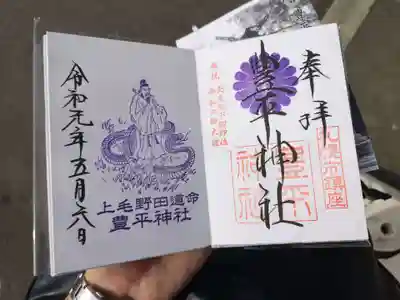 奉拝
豊平神社
豊平神社
令和元年五月六日
上毛野田道命
豊平神社